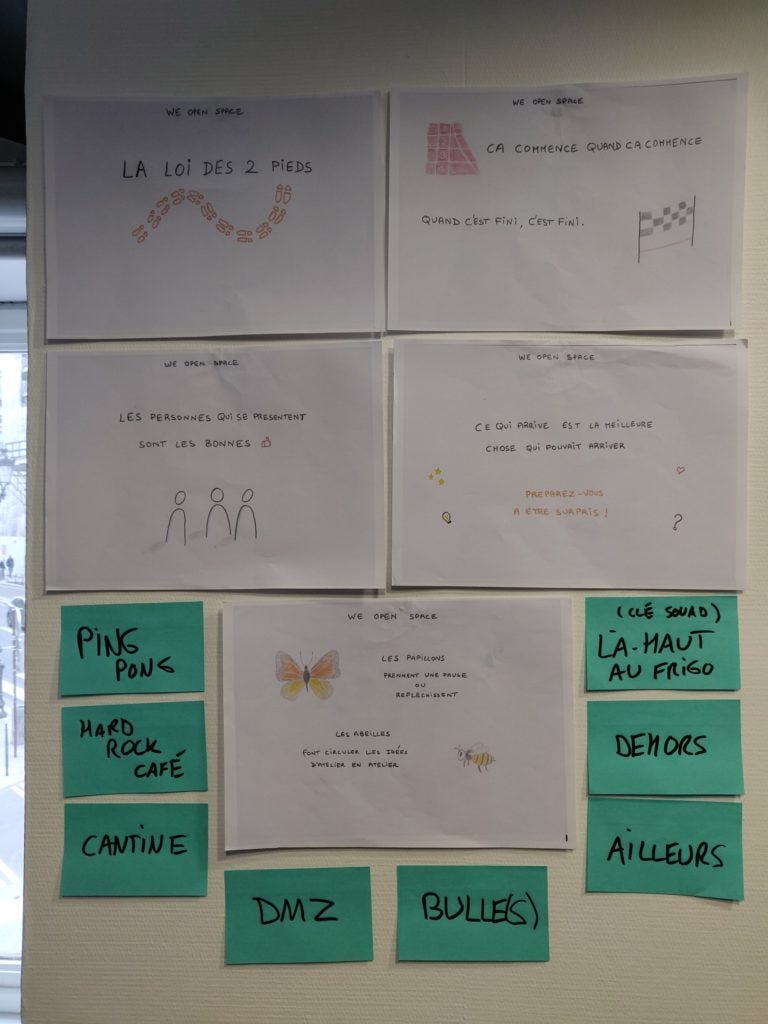 WE OPEN SPACE
LA LOI DES 2 PIEDS
WE OPEN SPACE
CA COMMENCE QUAND CA COMMENCE
QUAND C'EST FINI, C'EST FINI.
WE OPEN SPACE
LES PERSONNES QUI SE PRESENTENT
SONT LES BONNES
WE OPEN SPACE
CE QUI ARRIVE EST LA MEILLEURE
CHOSE QUI POUVAIT ARRIVER
PREPAREZ-VOUS
A ETRE SURPRIS !
?
PING
PONG
HARD
ROCK
CAFÉ
CANTINE
WE OPEN SPACE
LES PAPILLONS
PRENNENT UNE PAUSE
OU
REFLECHISSENT
LES ABEILLES
FONT CIRCULER LES IDÉES
D'ATELIER EN ATELIER
(CLÉ SQUAD)
LÀ-HAUT
AU FRIGO
DEHORS
AILLEURS
DMZ
BULLE(S)